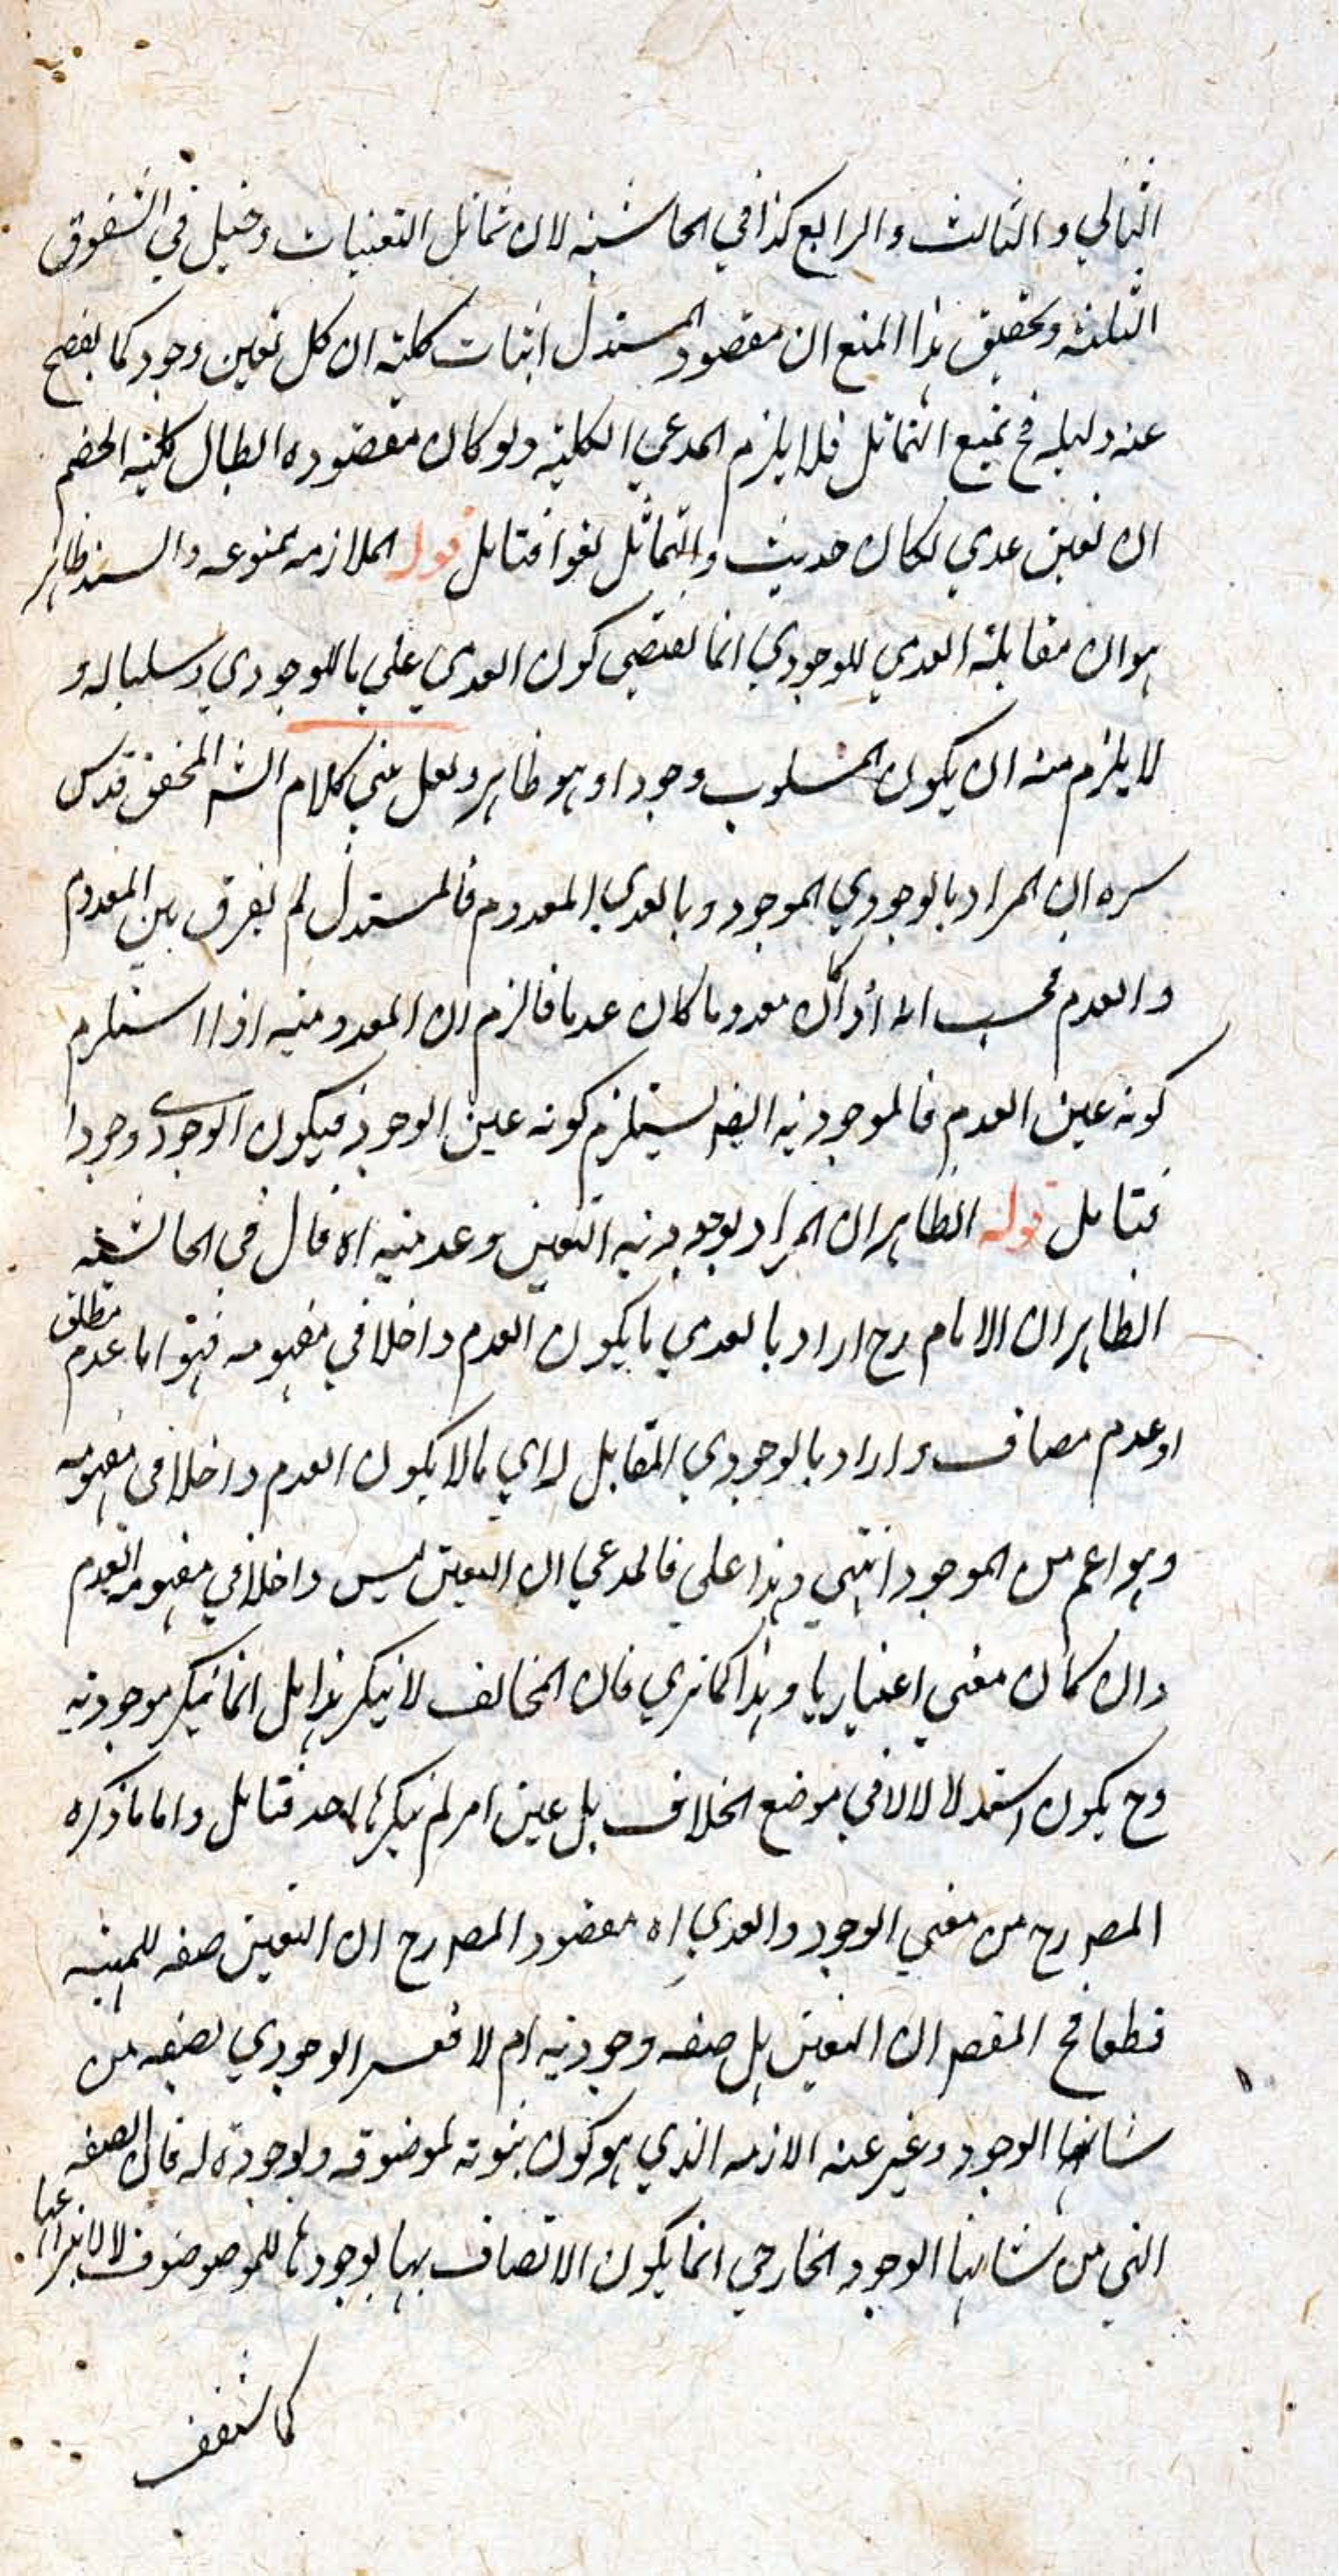 الثاني والثالث والرابع كذا في الحاشية لان تماثل التعينات دخيل في الشقوق
الثلثة وتحقيق هذا المنع ان مقصود المستدل اثبات كلية ان كل تعين وجود كما يفصح
عنه دليله فح نمنع التماثل فلا يلزم المدعي الكلية ولو كان مقصوده ابطال كلية الخصم
ان تعين عدمي لكان حديث والتماثل لغوا فتامل قوله الملازمة ممنوعة والسند ظاهر
هو ان مقابلة العدمي للوجودي انما يقتضي كون العدمي للوجودي وسلبا له و
لا يلزم منه ان يكون المسلوب وجودا وهو ظاهر ولعل مبني كلام الشه المحقق قدس
سره ان المراد بالوجودي الموجود وبالعدمي المعدوم فالمستدل لم يفرق بين المعدوم
والعدم فحسب انه اذا كان معدوما كان عدما فالزم ان المعدومية اذا استلزم
كونه عين العدم فالموجودية ايضا يستلزم كونه عين الوجود فيكون الوجودي وجودا
فتامل قوله الظاهر ان المراد بوجودية التعين وعدميته اه قال في الحاشية
الظاهر ان الامام رح اراد بالعدمي ما يكون العدم داخلا في مفهومه فهو اما عدم مطلق
او عدم مضاف واراد بالوجودي المقابل له اي ما لا يكون العدم داخلا في مفهومه
وهو اعم من الموجود انتهي وهذا علي فالمدعي ان التعين ليس داخلا في مفهومه العدم
وان كان معني اعتباريا وهذا كما تري فان المخالف لا ينكر هذا بل انما ينكر موجوديته
وح يكون استدلالا لا في موضع الخلاف بل عين امر لم ينكره احد فتامل واما ما ذكره
المصه رح من معني الوجود والعدمي اه مقصود المصه رح ان التعين صفة للمهية
قطعا فح المقصه ان التعين هل صفة وجودية ام لا ففسر الوجودي بصفة من
شانها الوجود وعبر عنه الازمه الذي هو كون ثبوته لموضوفه ولوجوده له فان الصفة
التي من شانها الوجود الخارجي انما يكون الاتصاف بها بوجودها للموصوف لا لانتزاعها